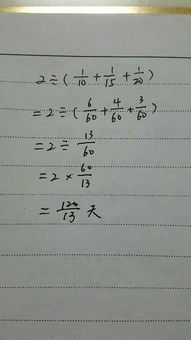 2÷(1/10+1/15+1/20)
=2÷(6/60+4/60+3/60)
=2÷13/60
=2×60/13
=120/13天